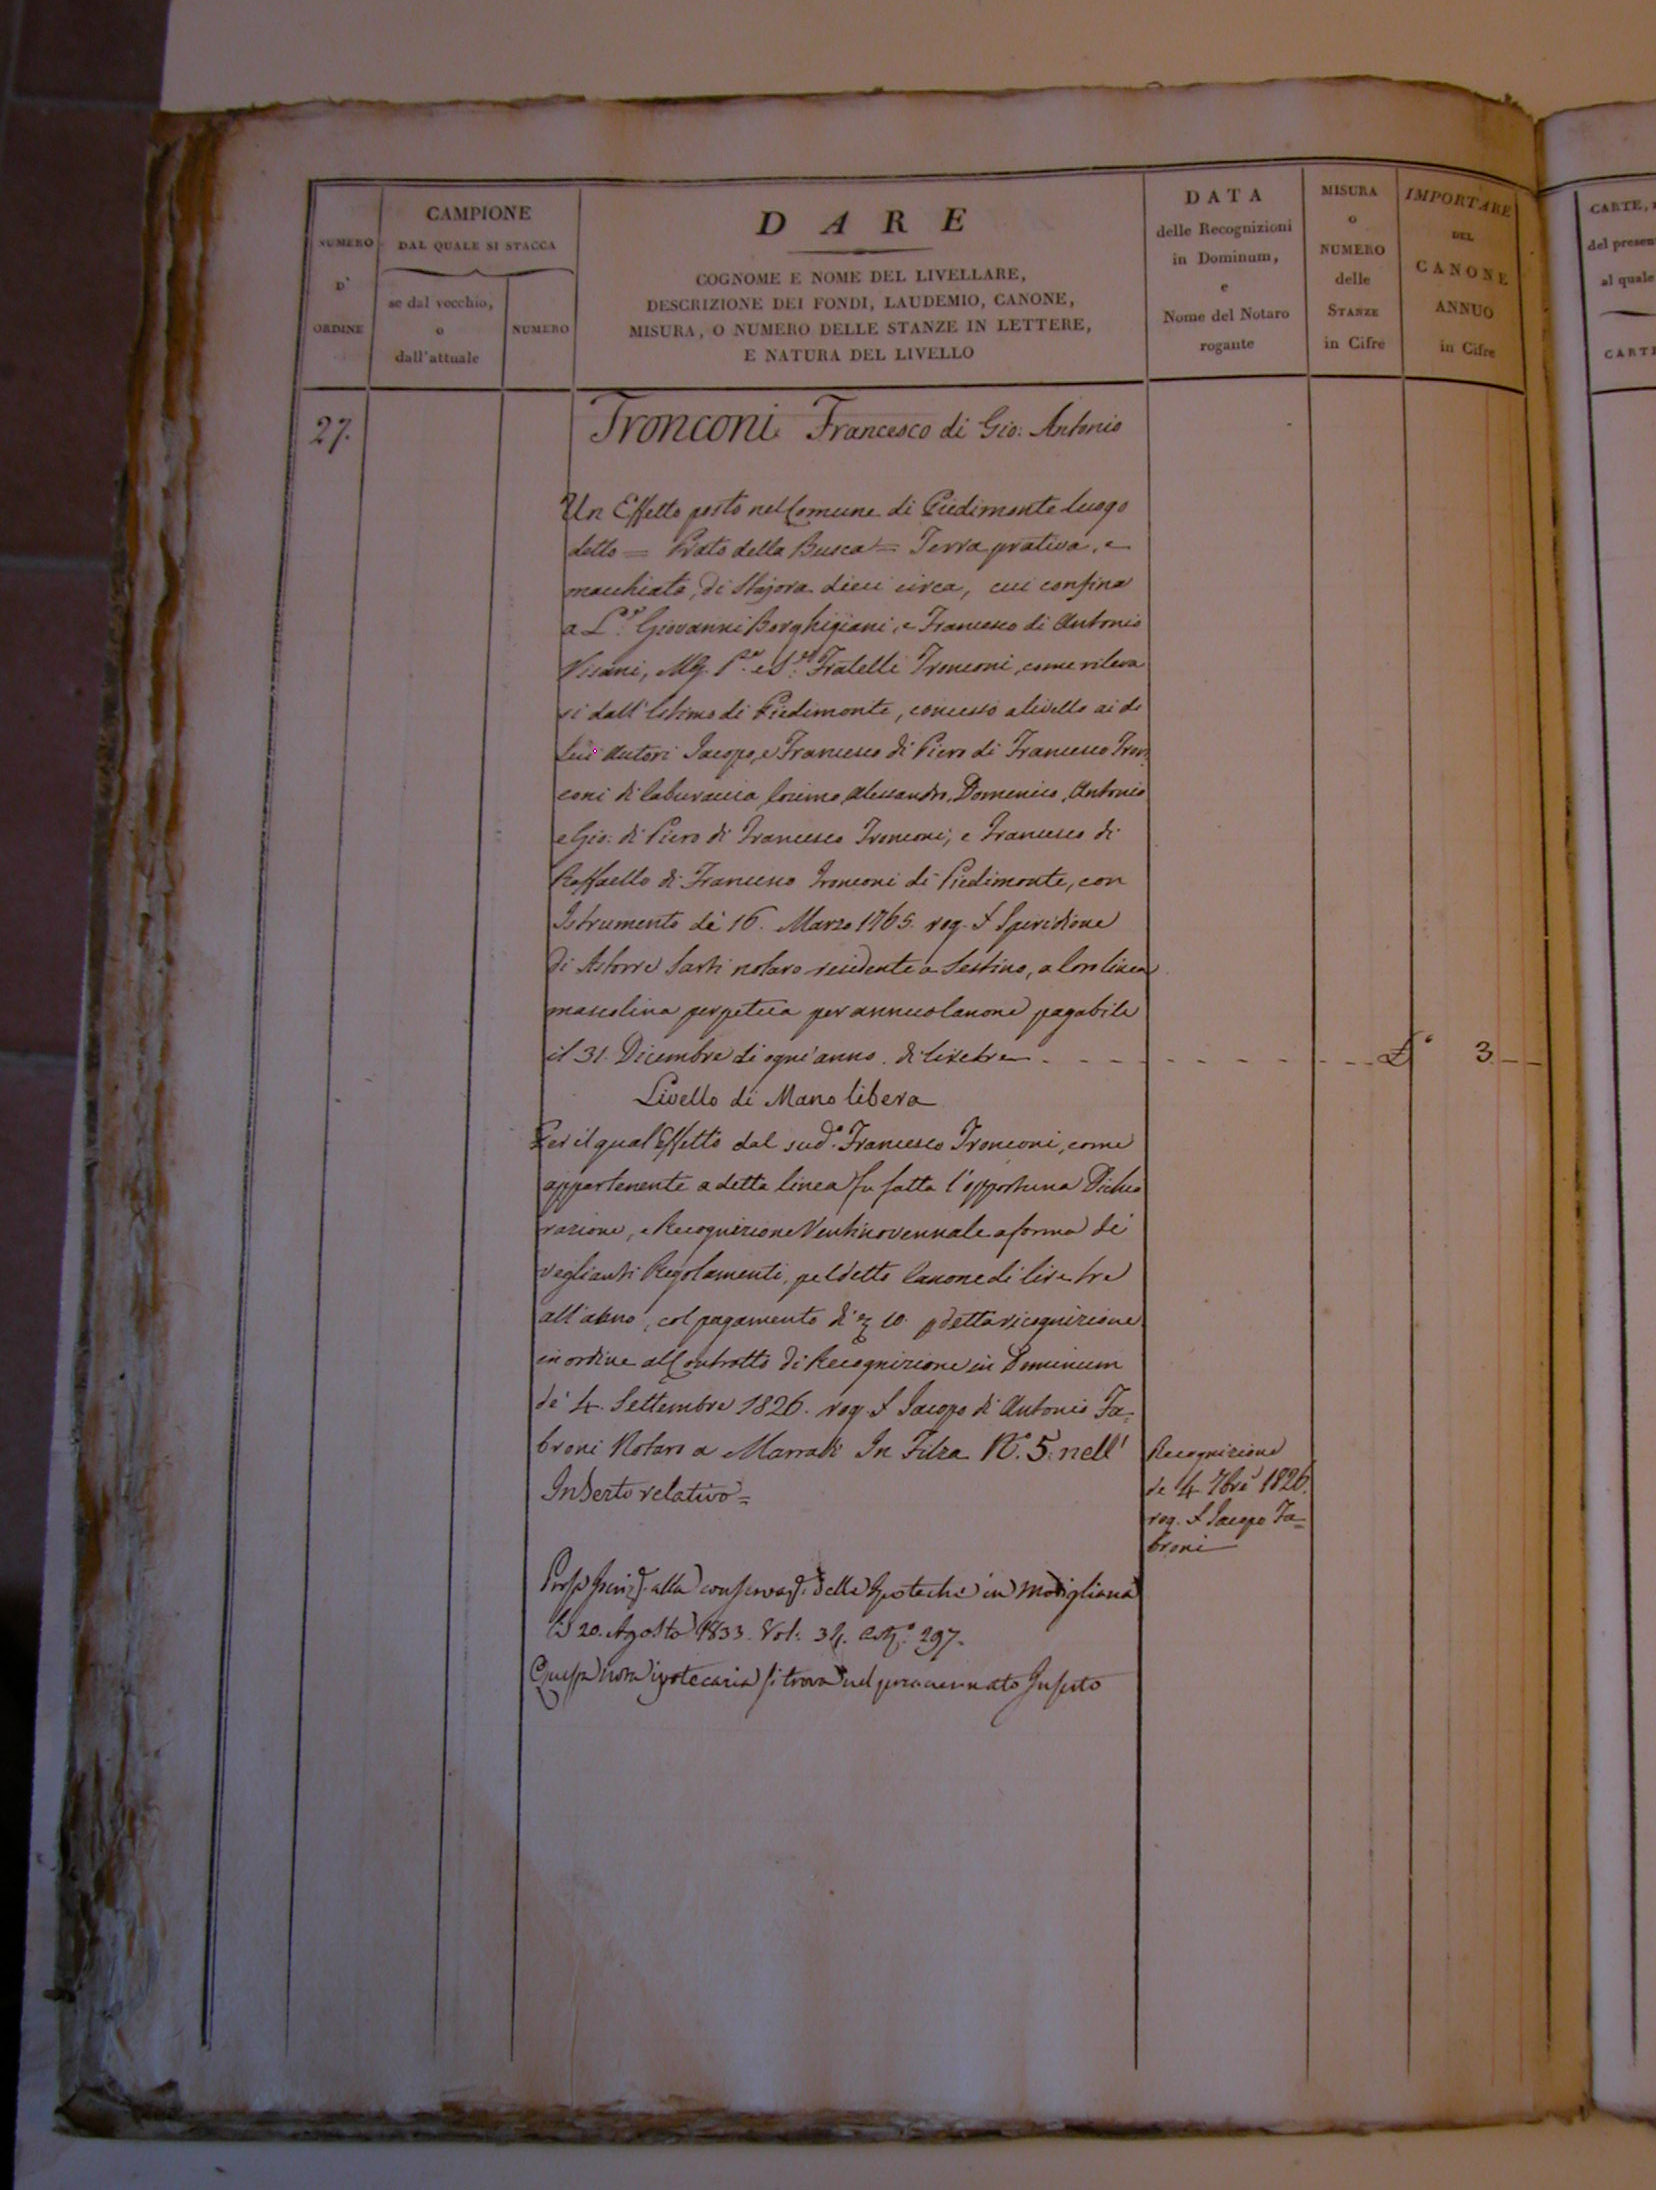 NUMERO
D'
ORDINE
CAMPIONE
DAL QUALE SI STACCA
se dal vecchio,
o
dall'attuale
NUMERO
DARE
COGNOME E NOME DEL LIVELLARE,
DESCRIZIONE DEI FONDI, LAUDEMIO, CANONE,
MISURA, O NUMERO DELLE STANZE IN LETTERE,
E NATURA DEL LIVELLO
DATA
delle Recognizioni
in Dominum,
e
Nome del Notaro
rogante
MISURA
o
NUMERO
delle
STANZE
in Cifre
IMPORTARE
DEL
CANONE
ANNUO
in Cifre
CARTE,
del presen
al quale
CARTE
27.
Tronconi Francesco di Gio: Antonio
Un Effetto posto nel Comune di Piedimonte luogo
detto = Prato della Busca = Terra prativa, e
macchiata, di Stajora dieci circa, cui confina
a Pr. Giovanni Borghigiani, e Francesco di Antonio
Visani, Fratelli Tronconi, come rileva
si dall'Estimo di Piedimonte, concesso a livello ai di
Lui Autori Jacopo, e Francesco di Piero di Francesco Tron
coni di Cosimo, Alessandro, Domenico, Antonio
e Gio: di Piero di Francesco Tronconi, e Francesco di
Raffaello di Francesco Tronconi di Piedimonte, con
Istrumento de' 16. Marzo 1765. rog. Speridione
di Astorre Sarti notaro residente a Sestino, a Loro linea
mascolina perpetua per annuo Canone pagabile
il 31. Dicembre di ogni anno. di lire tre
£ 3.
Livello di Mano libera
Per il qual Effetto dal sud.o Francesco Tronconi, come
appartenente a detta linea fu fatta l'opportuna Dichia
razione, e Recognizione Ventinovennale a forma de'
veglianti Regolamenti, pel detto Canone di lire tre
all'anno, col pagamento di 10. p detta ricognizione
in ordine al Contratto di Recognizione in Dominum
de' 4. Settembre 1826. rog. Jacopo di Antonio Fa=
broni Notaro a Marradi In Filza N.o 5. nell'
Inserto relativo=
Recognizione
de 4. 7bre 1826.
rog. Jacopo Fa=
broni
alla delle Ipoteche in Modigliana
li 20. Agosto 1833. Vol: 34. 297.
Questa nota ipotecaria si trova nel preaccennato Inserto